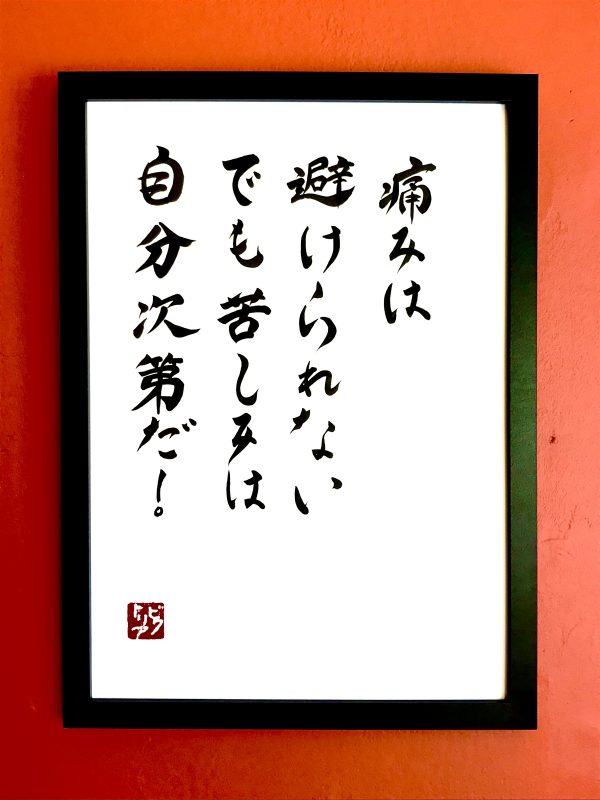 痛みは
避けられない
でも苦しみは
自分次第だ！
ビク
トリア